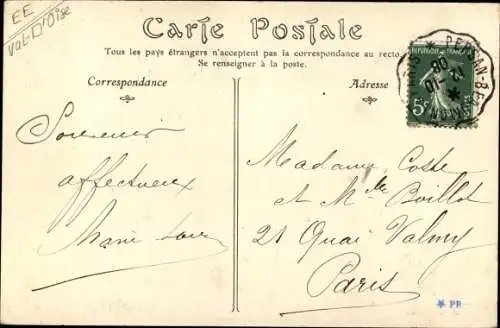 EE
Val-D'Oise
Carte Postale
Tous les pays étrangers n'acceptent pas la correspondance au recto.
Se renseigner à la poste.
Correspondance
Adresse
RÉPUBLIQUE FRANÇAISE
5c
PERSAN-BEAUMONT
12
10
08
Souvenir
affectueux
Marie
Madame Coste
et Mlle Boillot
21 Quai Valmy
Paris
PB